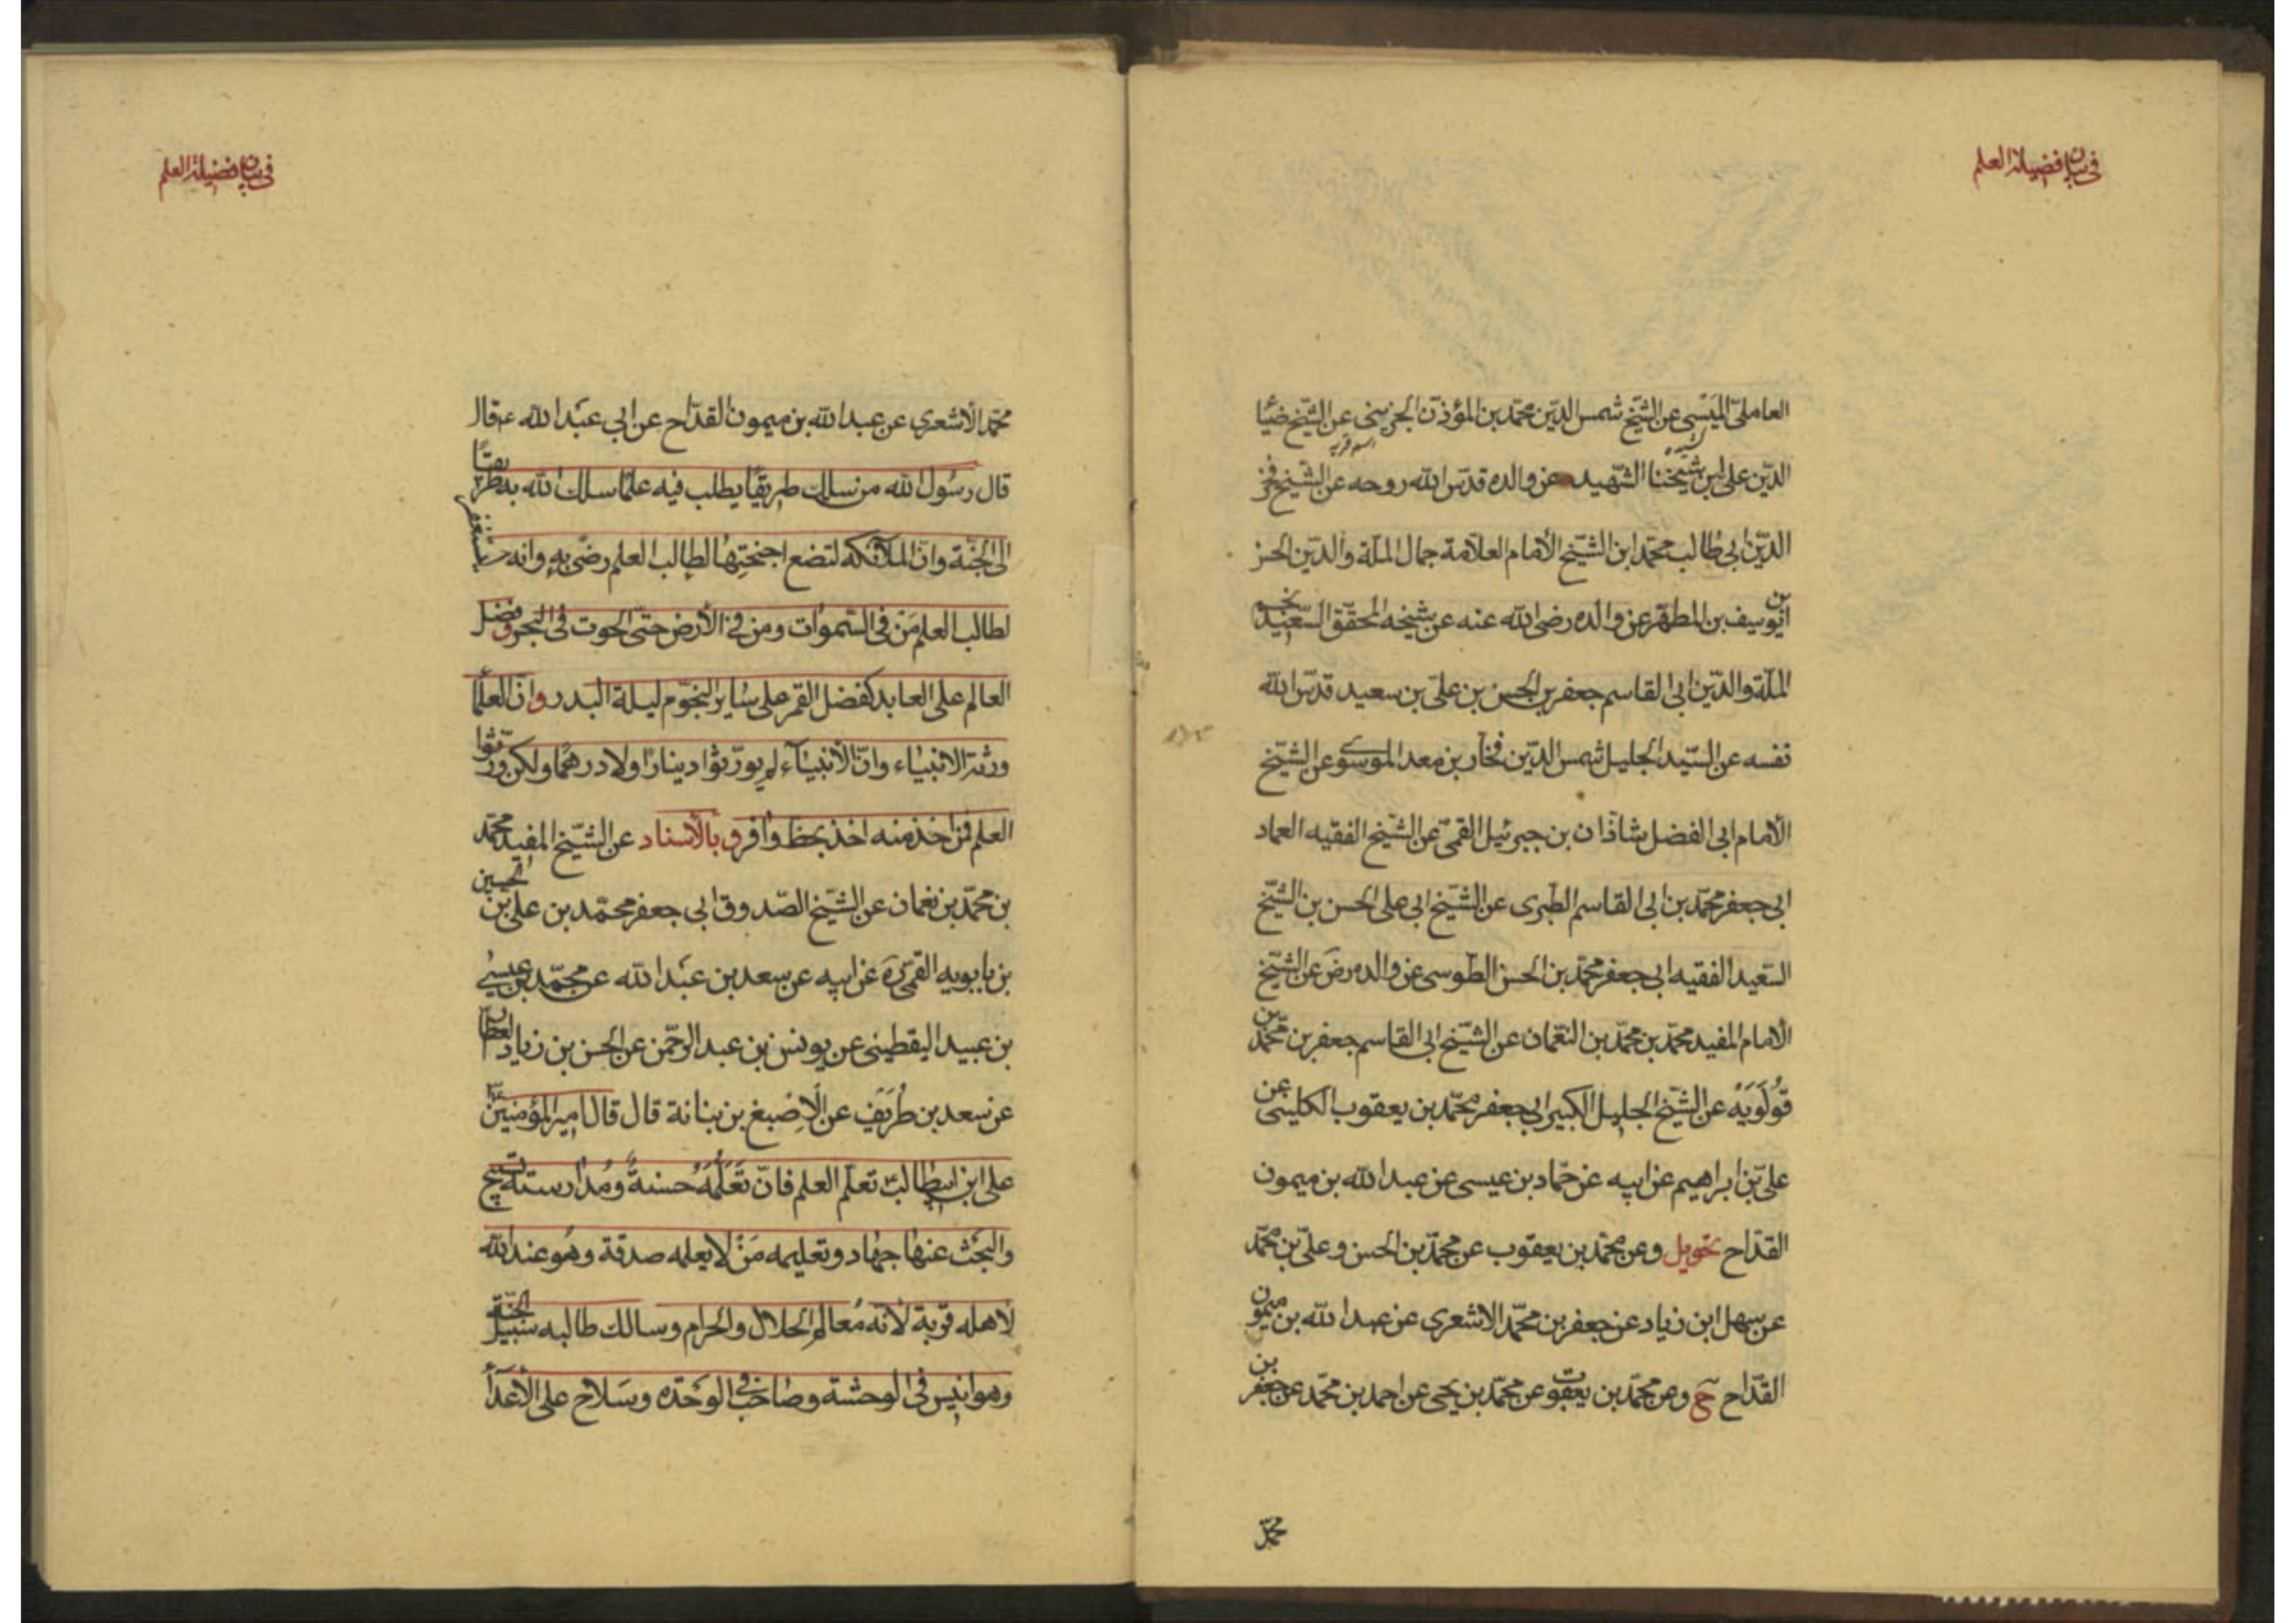 في بيان فضيلة العلم
العاملى الميسى عن الشيخ شمس الدين محمد بن المؤذن الجزينى عن الشيخ ضيا
اسم قريه
الدين على ابن شيخنا الشهيد عن والده قدس الله روحه عن الشيخ فخر
الدين ابى طالب محمد ابن الشيخ الأمام العلامة جمال الملة والدين الحسن
بن يوسف بن المطهر عن والده رضى الله عنه عن شيخه المحقق السعيد نجم
الملة والدين ابى القاسم جعفر بن الحسن بن على بن سعيد قدس الله
نفسه عن السيد الجليل شمس الدين فخار بن معد الموسوى عن الشيخ
الأمام ابى الفضل شاذان بن جبرئيل القمى عن الشيخ الفقيه العماد
ابى جعفر محمد بن ابى القاسم الطبرى عن الشيخ ابى على الحسن بن الشيخ
السعيد الفقيه ابى جعفر محمد بن الحسن الطوسى عن والده رض عن الشيخ
الامام المفيد محمد بن محمد بن النعمان عن الشيخ ابى القاسم جعفر بن محمد بن
قولويه عن الشيخ الجليل الكبير ابى جعفر محمد بن يعقوب الكلينى عن
على بن ابراهيم عن ابيه عن حماد بن عيسى عن عبد الله بن ميمون
القداح تحويل وعن محمد بن يعقوب عن محمد بن الحسن وعلى بن محمد
عن سهل ابن زياد عن جعفر بن محمد الاشعرى عن عبد الله بن ميمون
القداح ح وعن محمد بن يعقوب عن محمد بن يحيى عن احمد بن محمد عن جعفر بن
محمد
في بيان فضيلة العلم
محمد الأشعرى عن عبد الله بن ميمون القداح عن ابى عبد الله ع قال
قال رسول الله من سلك طريقا يطلب فيه علما سلك الله به طريقا
الى الجنة وان الملائكه لتضع اجنحتها لطالب العلم رضى به وانه يستغفر
لطالب العلم من فى السموات ومن فى الأرض حتى الحوت فى البحر وفضل
العالم على العابد كفضل القمر على ساير النجوم ليلة البدر وان العلما
ورثة الانبياء وان الأنبياء لم يورثوا دينارا ولا درهما ولكن ورثوا
العلم فمن اخذ منه اخذ بحظ وافر وبالأسناد عن الشيخ المفيد محمد
بن محمد بن نعمان عن الشيخ الصدوق ابى جعفر محمد بن على بن الحسين
بن بابويه القمى ره عن ابيه عن سعد بن عبد الله عن محمد بن عيسى
بن عبيد اليقطينى عن يونس بن عبد الرحمن عن الحسن بن زياد العطار
عن سعد بن طريف عن الاصبغ بن نباتة قال قال امير المؤمنين
على ابن ابيطالب تعلم العلم فان تعلمه حسنة ومدارسته تسبيح
والبحث عنها جهاد وتعليمه من لا يعلمه صدقة وهو عند الله
لاهله قربة لأنه معالم الحلال والحرام وسالك طالبه سبيل الجنة
وهو انيس فى الوحشة وصاحب فى الوحدة وسلاح على الأعدا